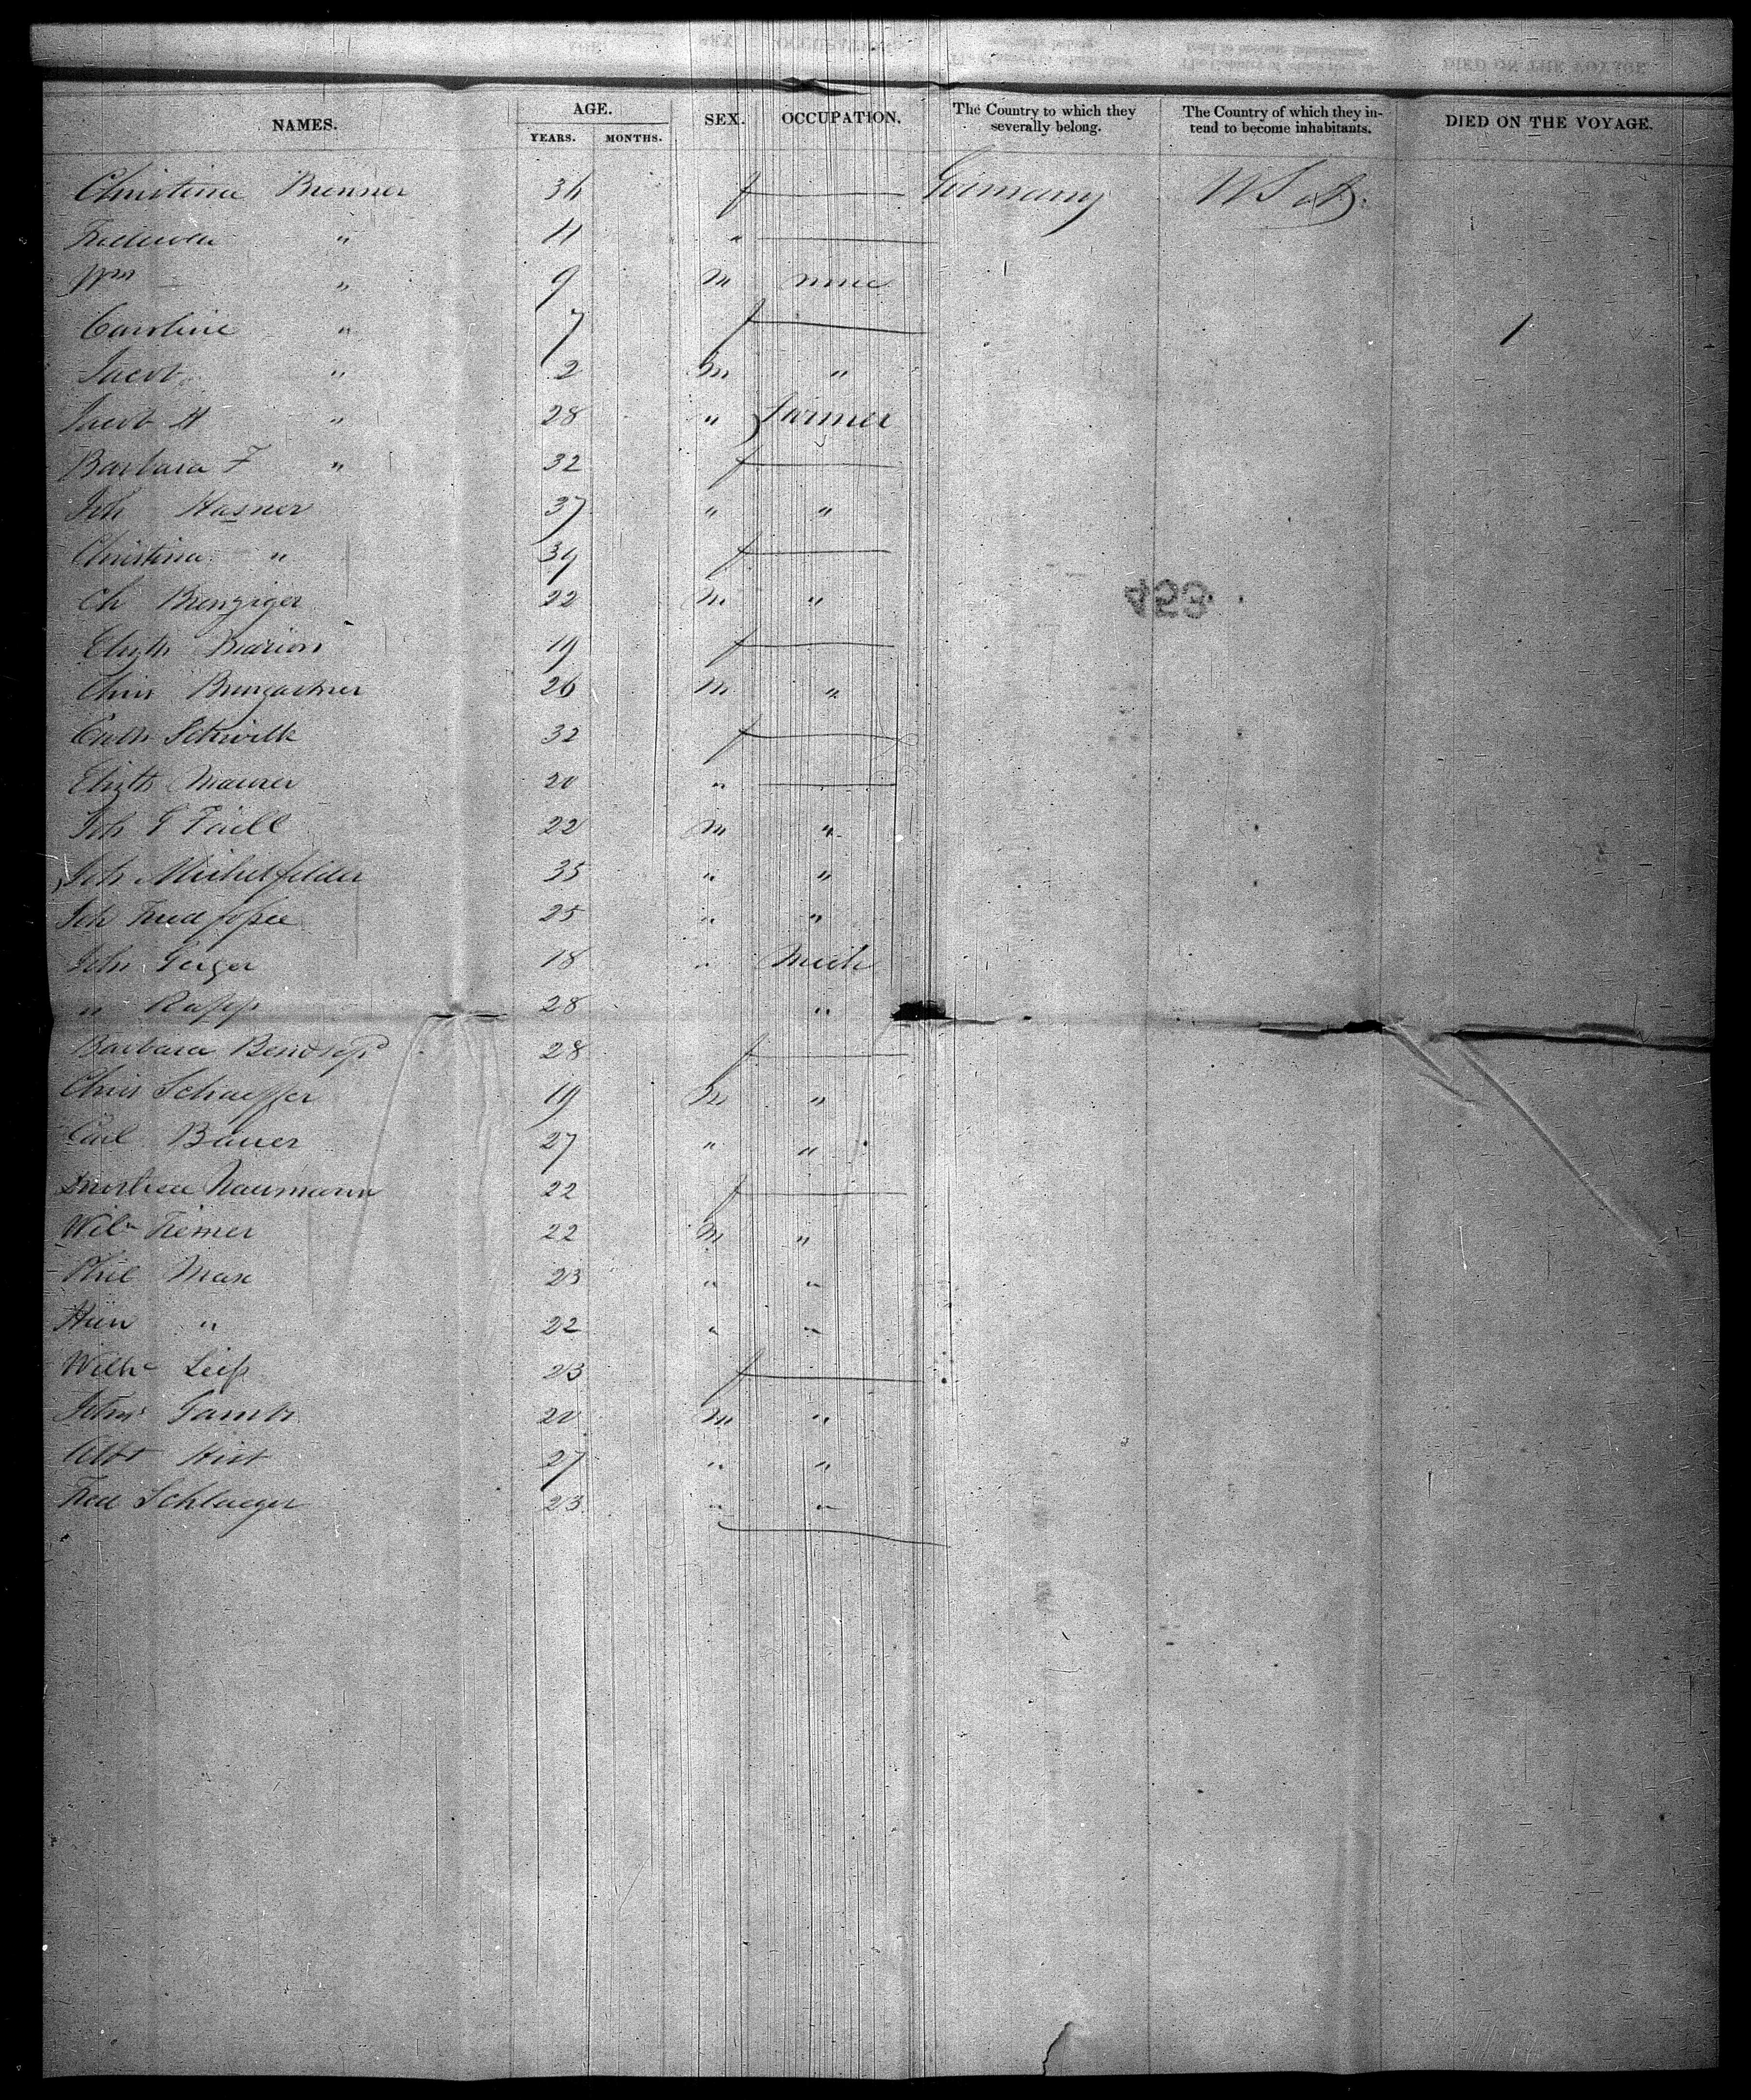 NAMES. AGE. YEARS. MONTHS. SEX. OCCUPATION. The Country to which they severally belong. The Country of which they intend to become inhabitants. DIED ON THE VOYAGE.
Christina Brenner 36 f Germany U S of A.
" 11 "
Wm " 9 m none
Caroline " 7 f 1
Jacob " 2 m "
Jacob H " 28 " farmer
Barbara F " 32 f
Joh Hasner 37 " "
Christina " 39 f
Ch Brenziger 22 m "
Elizth Marion 19 f
Chris Bumgartner 26 m "
Cath 32 f
Elizth Maurer 20 "
Joh G Faill 22 m "
Joh Michelfelder 35 " "
Joh Fred 25 " "
John Geiger 18 " Mech
" Rapp 28 "
Barbara 28 f
Chris Schaeffer 19 m "
Carl Bauer 27 " "
Dorothea Naumann 22 f
Wilm 22 m "
Phil Max 23 " "
" 22 " "
Wilh Leip 23 f
Johs 20 m "
Albt Hirt 27 " "
Fred Schlaeger 23 " "
453